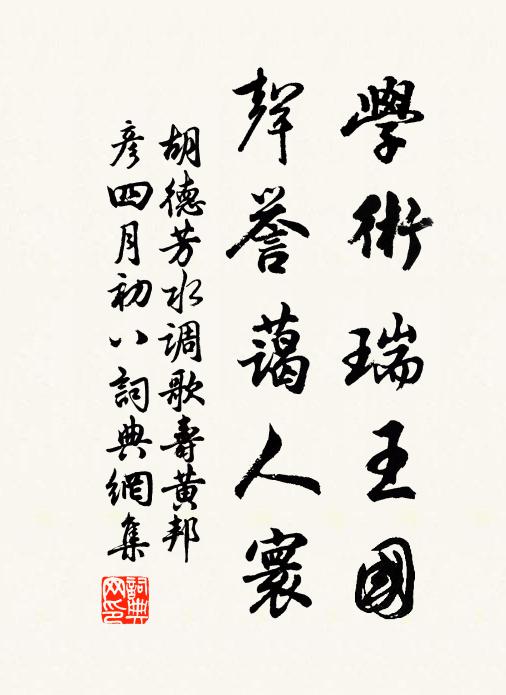 學術瑞王國
聲誉藹人寰
胡德芳水调歌壽黃邦
彦四月初八詞典網集
詞典網印